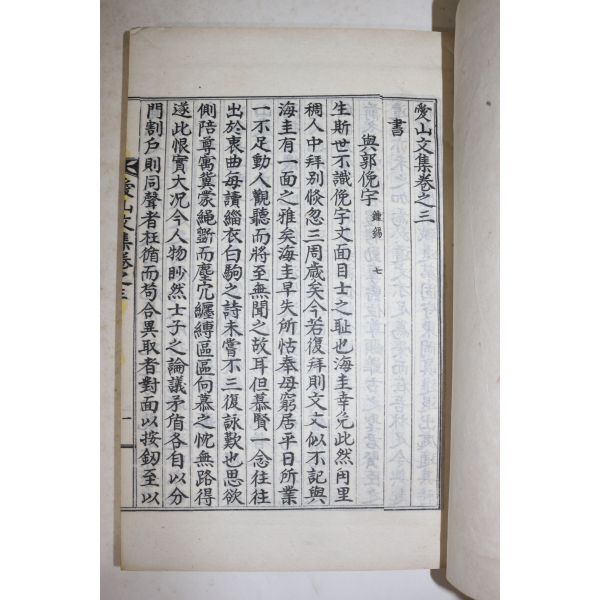 愛山文集卷之三
書
與郭俛宇 鍾錫 七
生斯世不識俛宇文面目士之耻也海圭幸免此然閈里
稠人中拜别倏忽三周歲矣今若復拜則文丈似不記與
海圭有一面之雅矣海圭早失所怙奉母窮居平日所業
一不足動人觀聽而將至無聞之故耳但慕賢一念往往
出於衷曲每讀緇衣白駒之詩未嘗不三復詠歎也思欲
側陪尊寓冀蒙繩斵而塵宂纏縛區區向慕之忱無路得
遂此恨實大况今人物眇然士子之論議矛盾各自以分
門割戶則同聲者枉循而苟合異取者對面以按釰至以
愛山文集卷之三
一